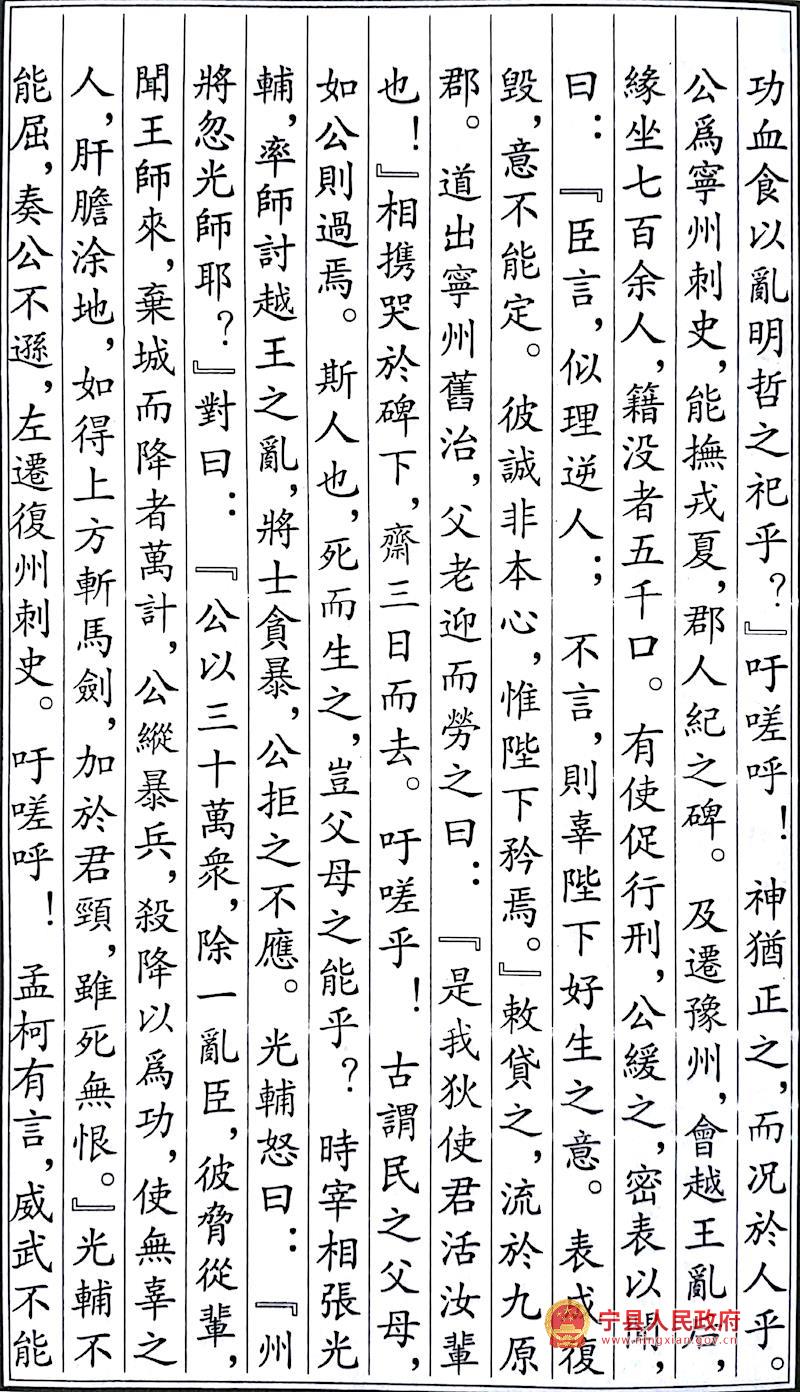 功血食以亂明哲之祀乎？』吁嗟呼！神猶正之，而况於人乎。
公爲寧州刺史，能撫戎夏，郡人紀之碑。及遷豫州，會越王亂，
緣坐七百余人，籍没者五千口。有使促行刑，公緩之，密表以聞，
曰：『臣言，似理逆人；不言，則辜陛下好生之意。表成復
毁，意不能定。彼誠非本心，惟陛下矜焉。』敕貸之，流於九原
郡。道出寧州舊治，父老迎而勞之曰：『是我狄使君活汝輩
也！』相携哭於碑下，齋三日而去。吁嗟乎！古謂民之父母，
如公則過焉。斯人也，死而生之，豈父母之能乎？時宰相張光
輔，率師討越王之亂，將士貪暴，公拒之不應。光輔怒曰：『州
將忽光師耶？』對曰：『公以三十萬衆，除一亂臣，彼脅從輩，
聞王師來，棄城而降者萬計，公縱暴兵，殺降以爲功，使無辜之
人，肝膽涂地，如得上方斬馬劍，加於君頸，雖死無恨。』光輔不
能屈，奏公不遜，左遷復州刺史。吁嗟呼！孟柯有言，威武不能
宁县人民政府
www.ningxian.gov.cn